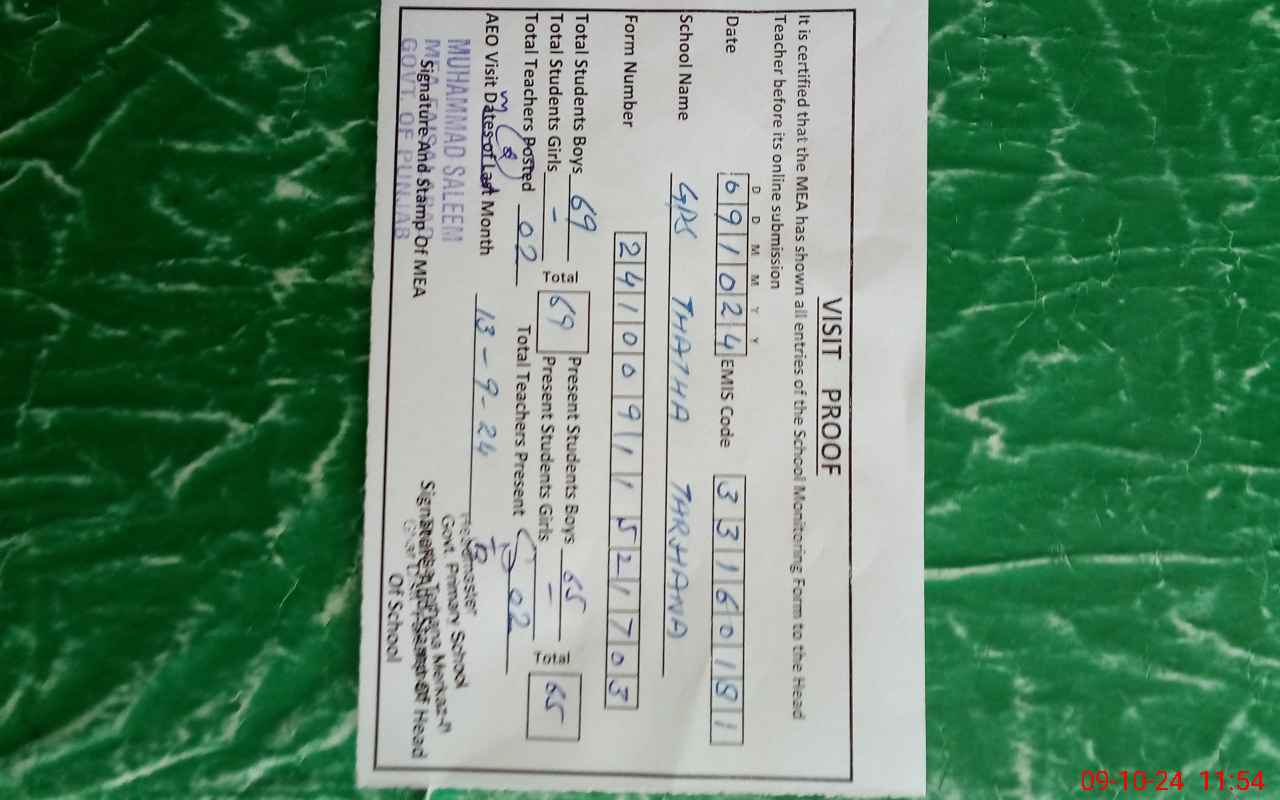 VISIT PROOF
It is certified that the MEA has shown all entries of the School Monitoring Form to the Head
Teacher before its online submission
D D M M Y Y
Date 691024 EMIS Code 33160181
School Name GPS THATHA TARHANA
Form Number 24100911521703
Total Students Boys 69 Present Students Boys 65
Total Students Girls - Total 69 Present Students Girls - Total 65
Total Teachers Posted 02 Total Teachers Present 02
AEO Visit Dates of Last Month 13-9-24
MUHAMMAD SALEEM
MEA
GOVT. OF PUNJAB
Signature And Stamp Of MEA
Headmaster
Govt. Primary School
Tarhana Merkaz-
Signature And Stamp Of Head
Of School
09-10-24 11:54